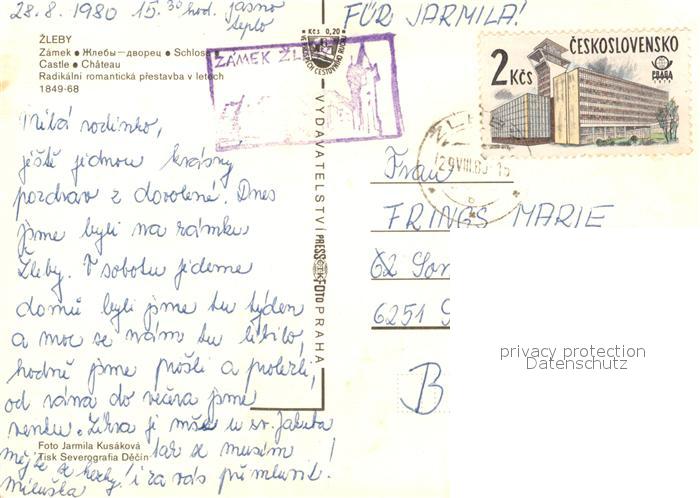 28.8.1980 15.30 hod. jasno
teplo
FÜR JARMILA!
ŽLEBY
Zámek • Жлебы—дворец • Schloss
Castle • Château
Radikální romantická přestavba v letech
1849-68
Kčs 0,20
ZÁMEK ŽL
ČESKOSLOVENSKO
2 Kčs
PRAGA
Milá rodinko,
ještě jednou krásný
pozdrav z dovolené. Dnes
jsme byli na zámku
Žleby. V sobotu jedeme
domů byli jsme tu týden
a moc se nám tu líbilo,
hodně jsme prošli a prolezli,
od rána do večera jsme
venku. Zítra je mše u sv. Jakuba
tak se musím
mějte se hezky! i za vás přimluvit.
Miluška
VYDAVATELSTVÍ PRESSFOTO PRAHA
29.VIII.80-15
Frau
FRINGS MARIE
62
6251
B
Foto Jarmila Kusáková
Tisk Severografia Děčín
privacy protection
Datenschutz